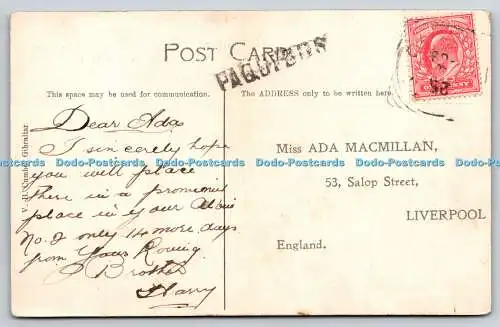 POST CARD
PAQUEBOT
This space may be used for communication.
The ADDRESS only to be written here.
Dear Ada
I sincerely hope
you will place
there in a prominent
place in your
No. 2 only 14 more days
from Yours
Brother
Harry
Miss ADA MACMILLAN,
53, Salop Street,
LIVERPOOL
England.
V. B. Cumbo, Gibraltar
Dodo-Postcards Dodo-Postcards Dodo-Postcards Dodo-Postcards Dodo-Postcards Dodo-Postcards